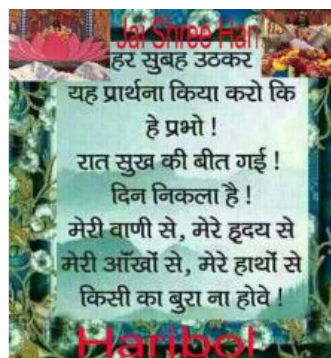 Jai Shree Han
हर सुबह उठकर
यह प्रार्थना किया करो कि
हे प्रभो !
रात सुख की बीत गई !
दिन निकला है !
मेरी वाणी से, मेरे हृदय से
मेरी आँखों से, मेरे हाथों से
किसी का बुरा ना होवे !
Haribol